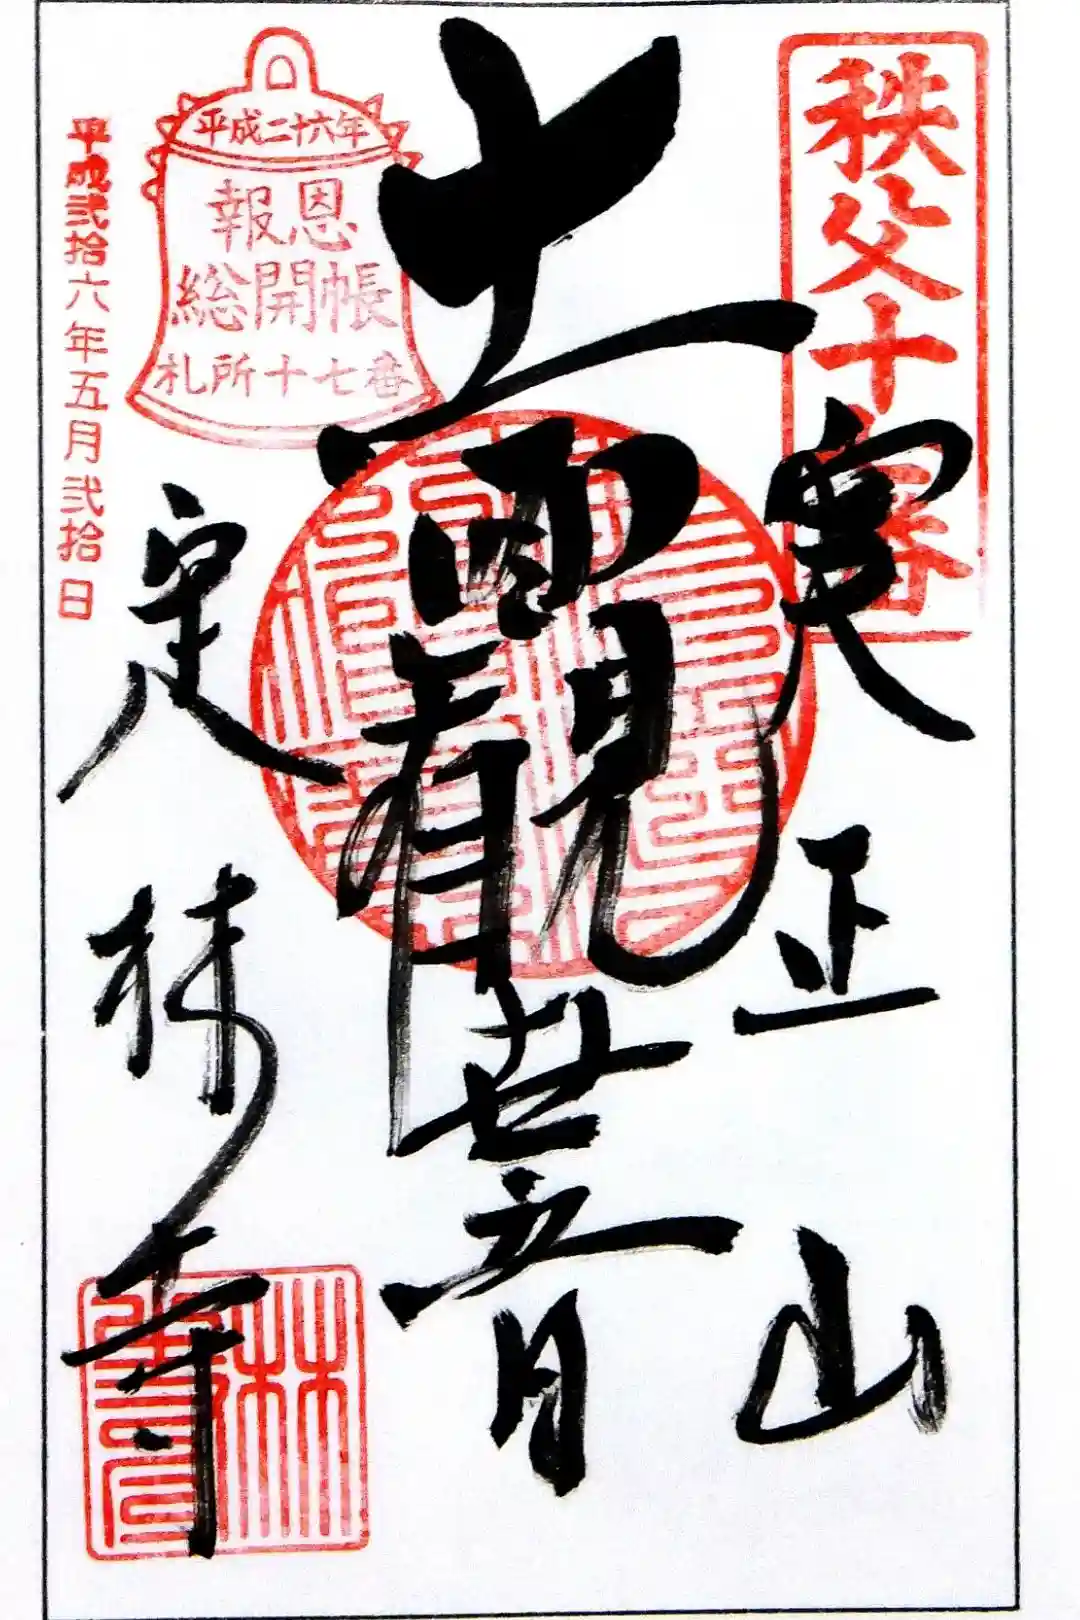 秩父十七番
實正山
十一面観世音
平成二十六年
報恩
総開帳
札所十七番
定林寺
平成弐拾六年五月弐拾日